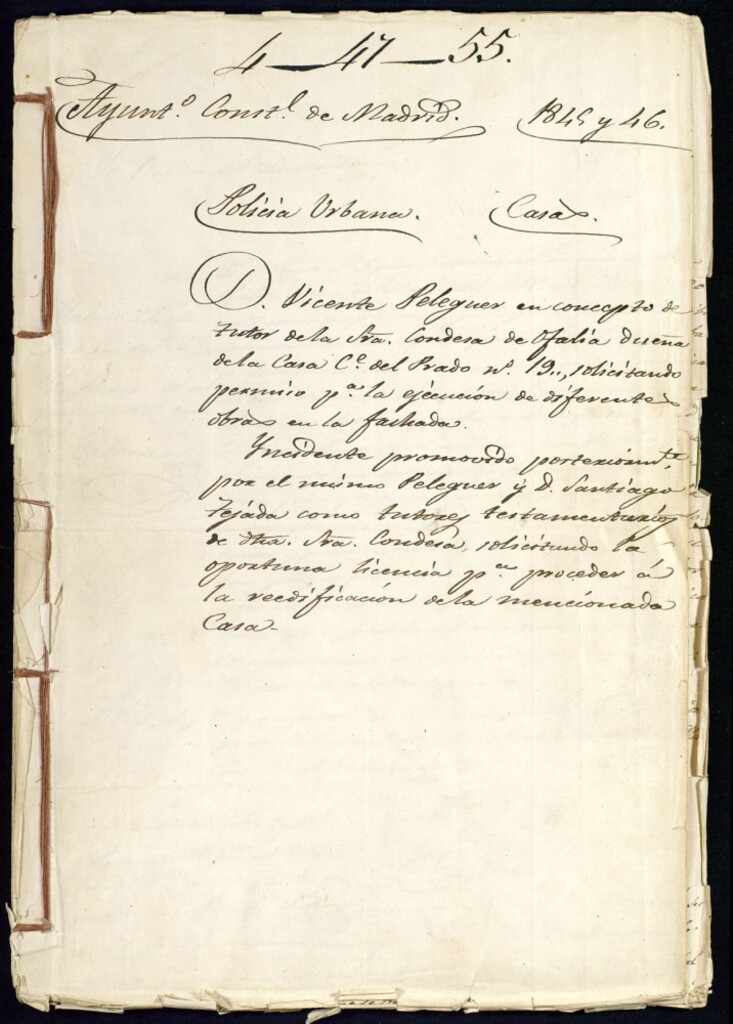 4—47—55.
Ayunt.º Const.l de Madrid. 1845 y 46.
Policia Urbana. Casas.
D. Vicente Peleguer en concepto de
tutor dela Sra. Condesa de Ofalia dueña
dela Casa C.e del Prado nº. 19., solicitando
permiso p.a la ejecución de diferentes
obras en la fachada.
Yncidente promovido posteriorm.te
por el mismo Peleguer y D. Santiago
Tejada como tutores testamentarios
de dha. Sra. Condesa, solicitando la
oportuna licencia p.a proceder á
la reedificación dela mencionada
Casa-